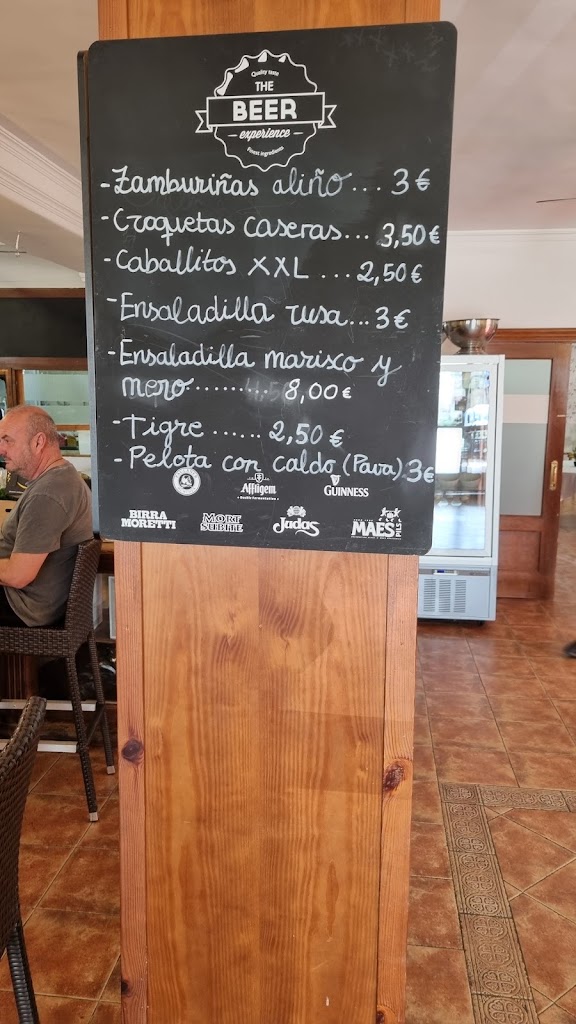 Quality taste
THE
BEER
experience
Finest ingredients
-Zamburiñas aliño... 3€
-Croquetas caseras... 3,50€
-Caballitos XXL .... 2,50€
-Ensaladilla rusa... 3€
-Ensaladilla marisco y
mero.......... 8,00€
-Tigre ...... 2,50€
-Pelota con caldo (Pava) 3€
Affligem
GUINNESS
BIRRA
MORETTI
MORT
SUBITE
Judas
MAES PILS